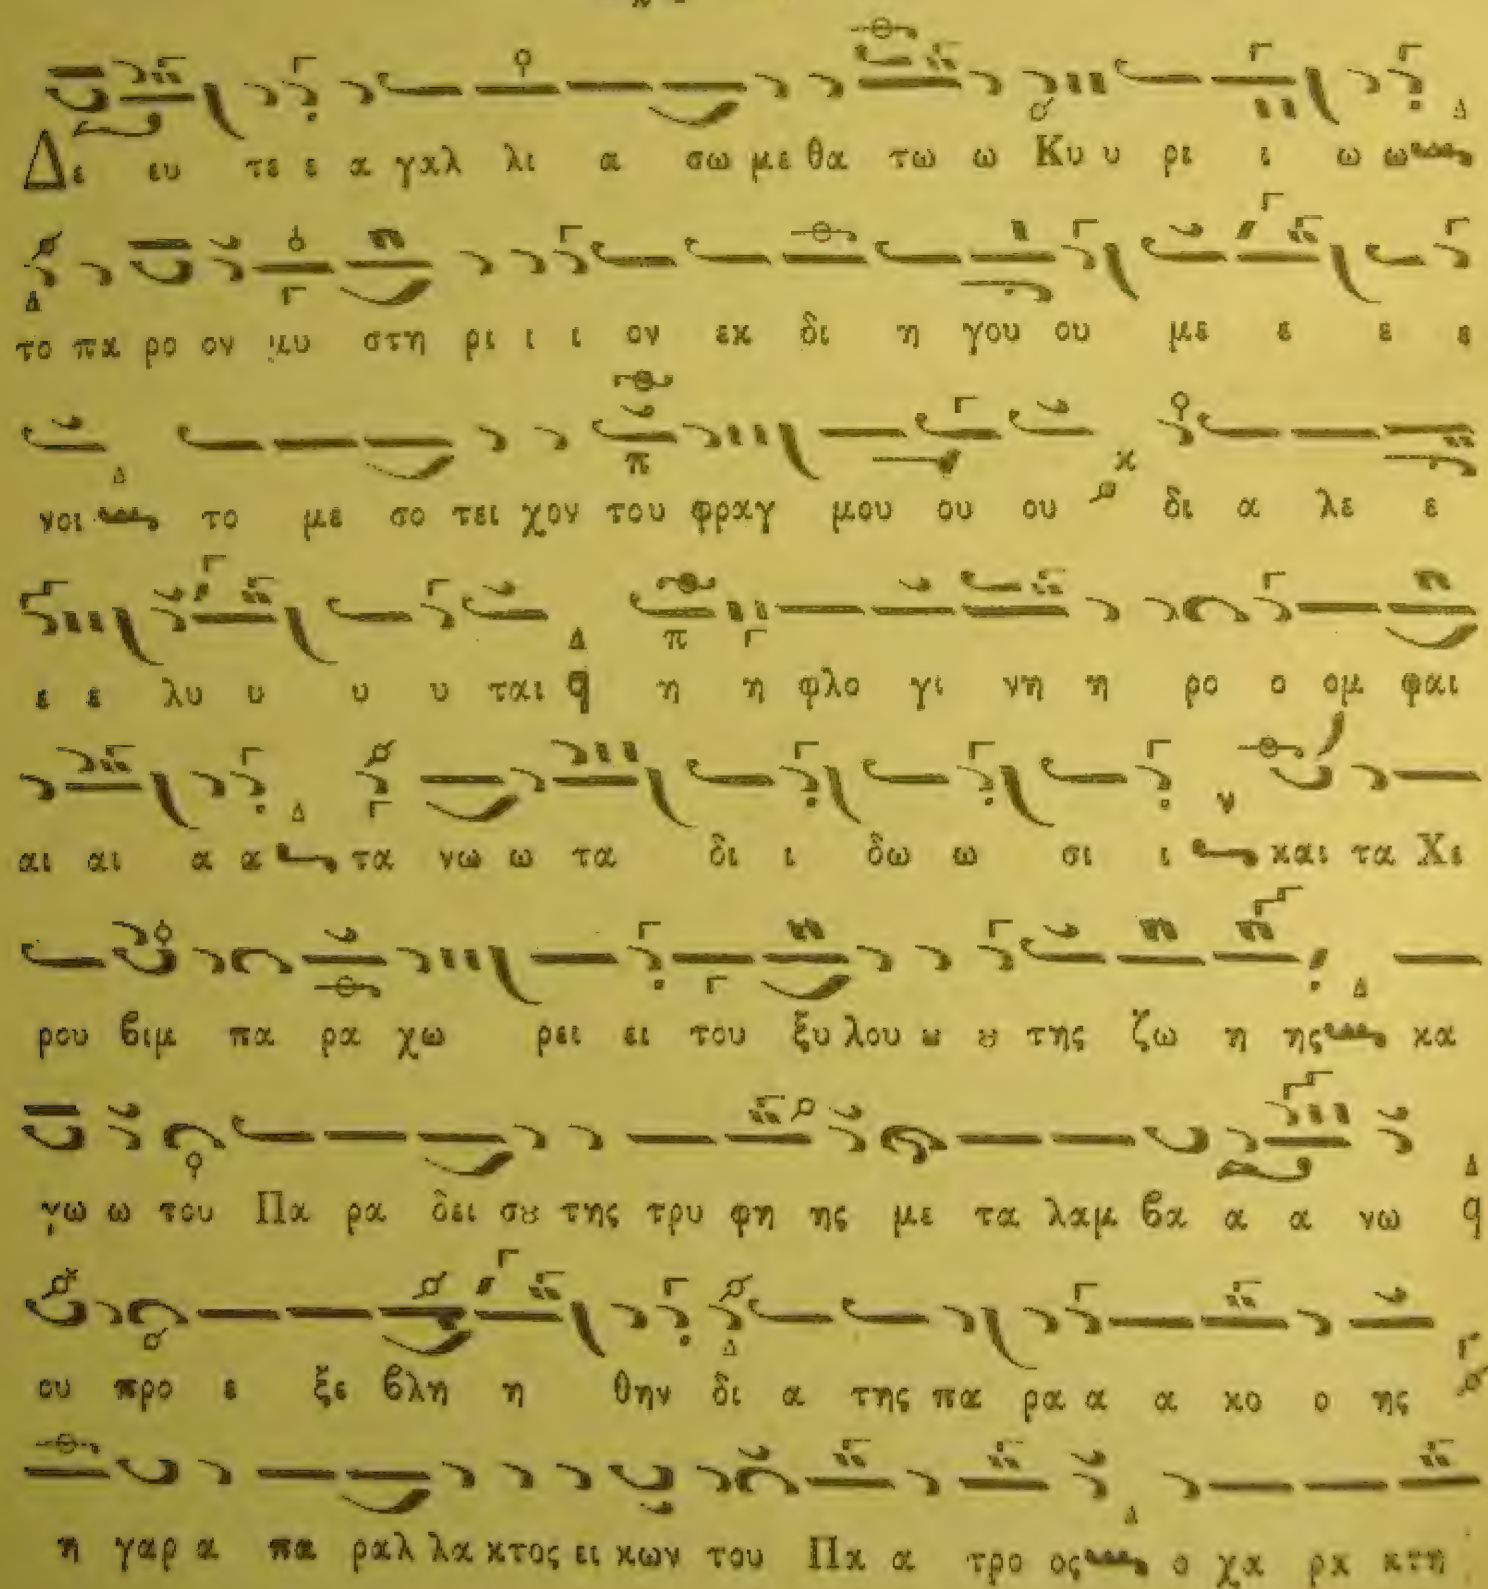 Δε ευ τε ε α γαλ λι α σω με θα τω ω Κυ υ ρι ι ω ω
το πα ρο ον μυ στη ρι ι ι ον εκ δι η γου ου με ε ε ε
νοι το με σο τει χον του φραγ μου ου ου δι α λε ε
ε ε λυ υ υ υ ται η η φλο γι νη η ρο ο ομ φαι
αι αι α α τα νω ω τα δι ι δω ω σι ι και τα Χε
ρου βιμ πα ρα χω ρει ει του ξυ λου ȣ ȣ της ζω η ης κα
γω ω του Πα ρα δει σȣ της τρυ φη ης με τα λαμ βα α α νω
ου προ ε ξε βλη η θην δι α της πα ρα α α κο ο ης
η γαρ α πα ραλ λα κτος ει κων του Πα α τρο ος ο χα ρα κτη